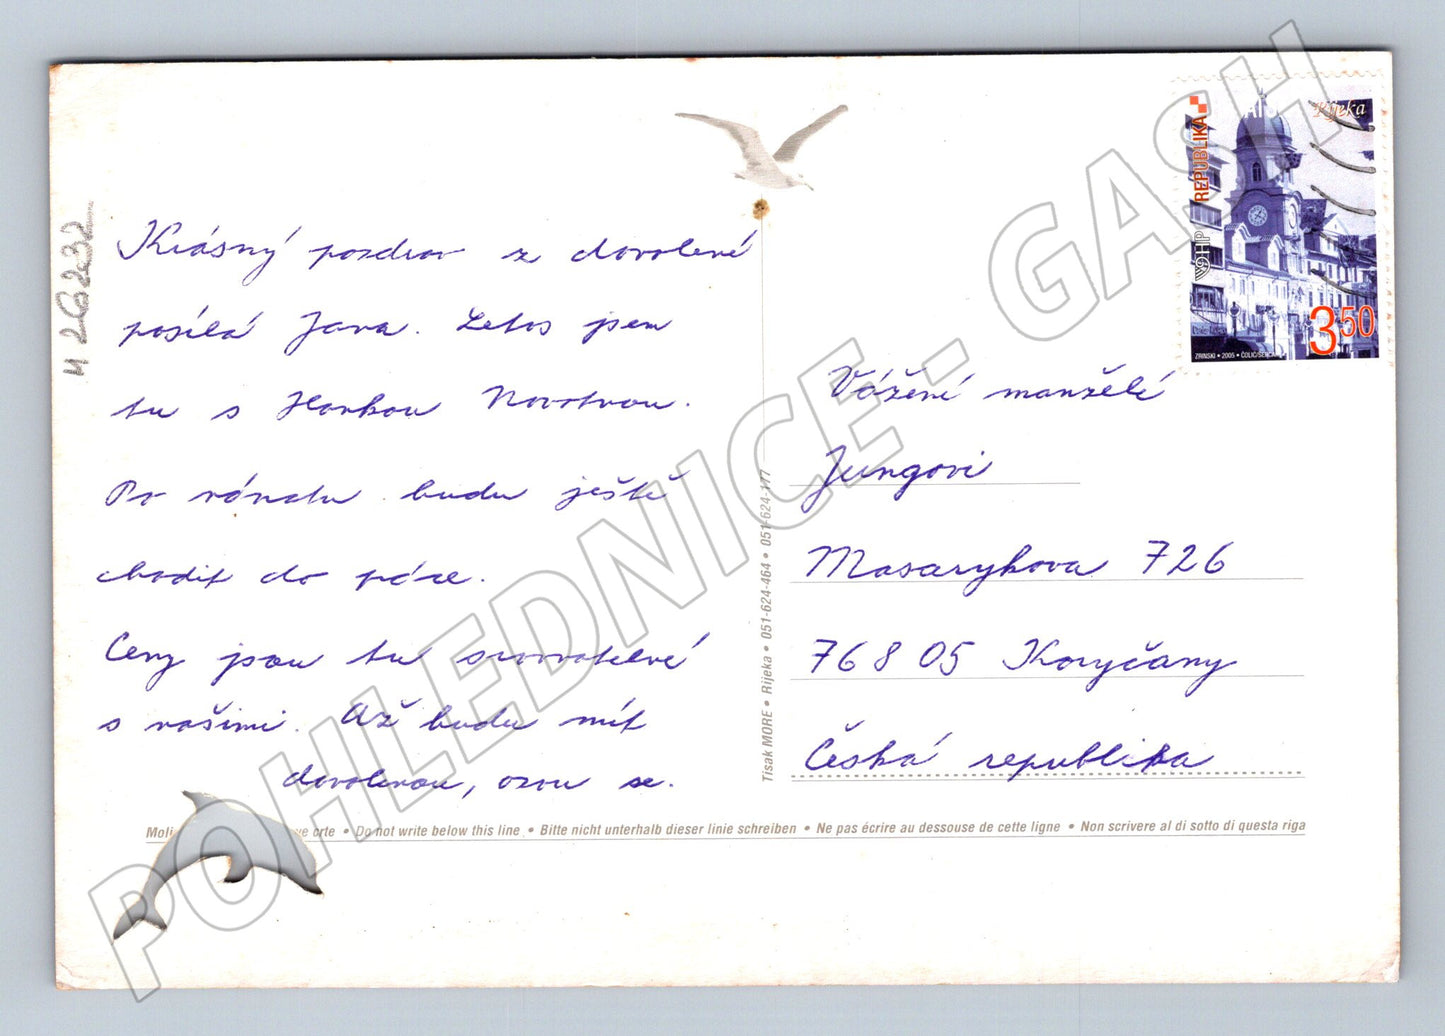 Krásný pozdrav z dovolené
posílá Jana. Letos jsem
tu s Hankou Novotnou.
Po návratu budu ještě
chodit do práce.
Ceny jsou tu srovnatelné
s našimi. Až budu mít
dovolenou, ozvu se.
Vážení manželé
Jungovi
Masarykova 726
768 05 Koryčany
Česká republika
REPUBLIKA
Rijeka
HP
3 50
ZRINSKI • 2005 •
Tisak MORE • Rijeka • 051-624-464 • 051-624-177
Moli ve crte • Do not write below this line • Bitte nicht unterhalb dieser linie schreiben • Ne pas écrire au dessouse de cette ligne • Non scrivere al di sotto di questa riga
POHLEDNICE - GASH